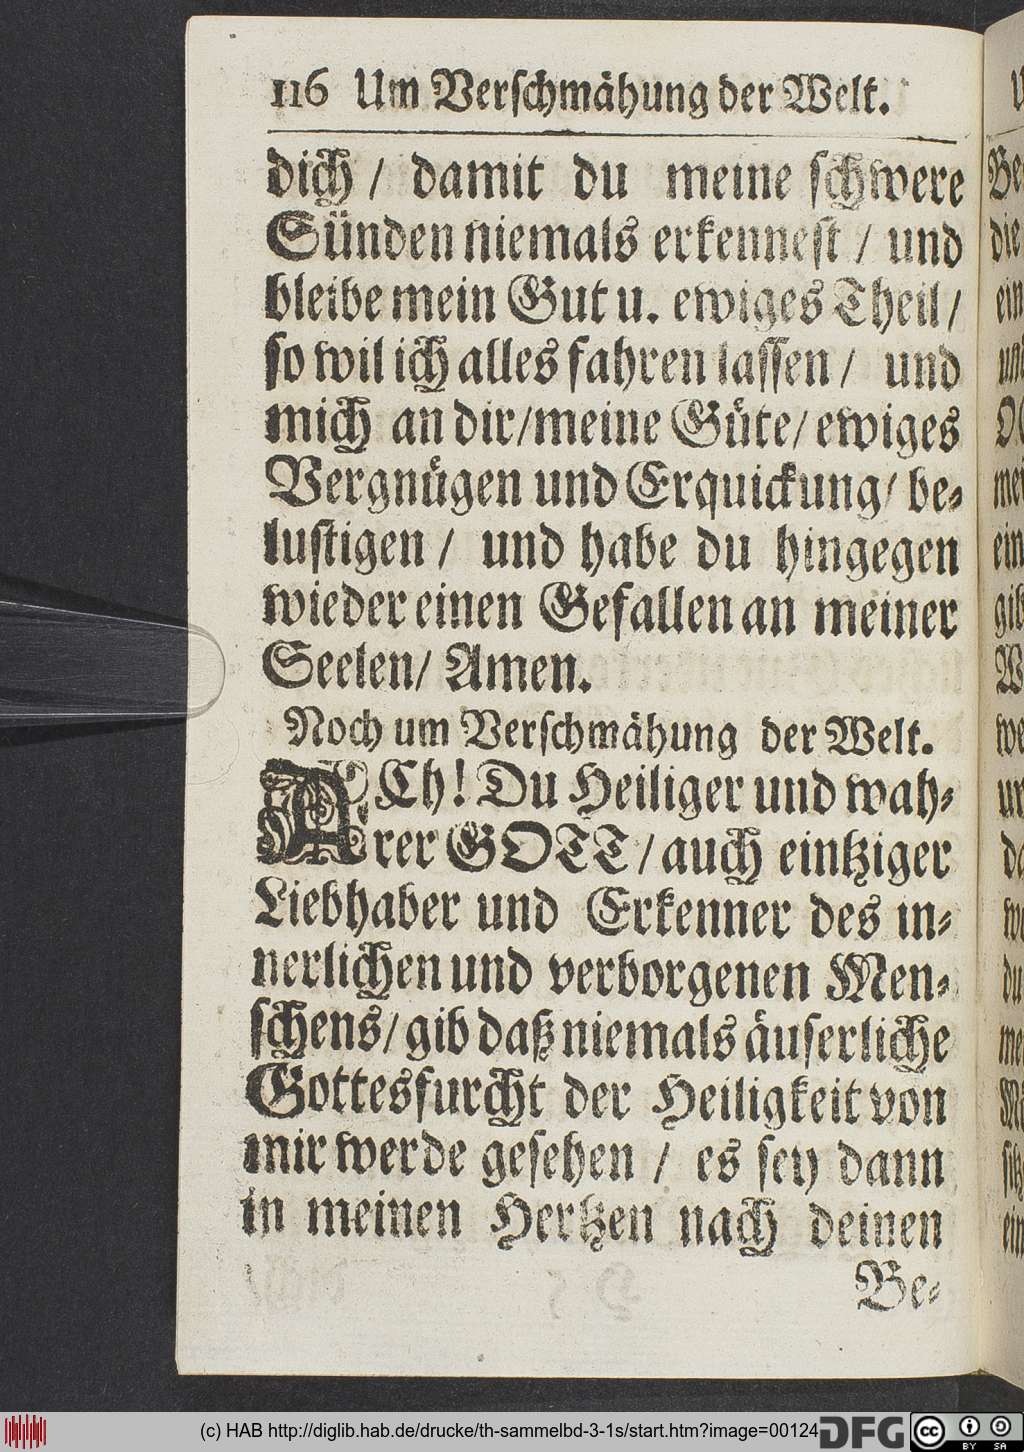 116 Um Verschmähung der Welt.
dich / damit du meine schwere
Sünden niemals erkennest / und
bleibe mein Gut u. ewiges Theil /
so wil ich alles fahren lassen / und
mich an dir / meine Güte / ewiges
Vergnügen und Erquickung / be-
lustigen / und habe du hingegen
wieder einen Gefallen an meiner
Seelen / Amen.
Noch um Verschmähung der Welt.
ACh! Du Heiliger und wah-
rer GOTT / auch eintziger
Liebhaber und Erkenner des in-
nerlichen und verborgenen Men-
schens / gib daß niemals äuserliche
Gottesfurcht der Heiligkeit von
mir werde gesehen / es sey dann
in meinen Hertzen nach deinen
Be-
(c) HAB http://diglib.hab.de/drucke/th-sammelbd-3-1s/start.htm?image=00124
DFG
cc BY SA